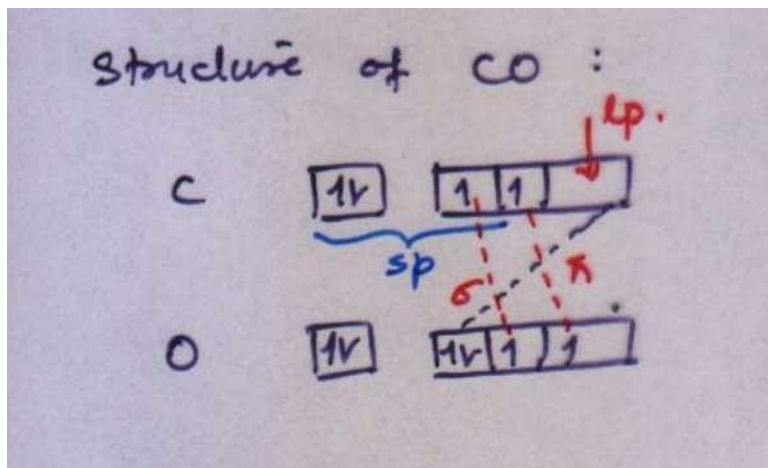 Structure of CO :
lp.
C 1v 1 1
sp
σ π
O 1v 1v 1 1